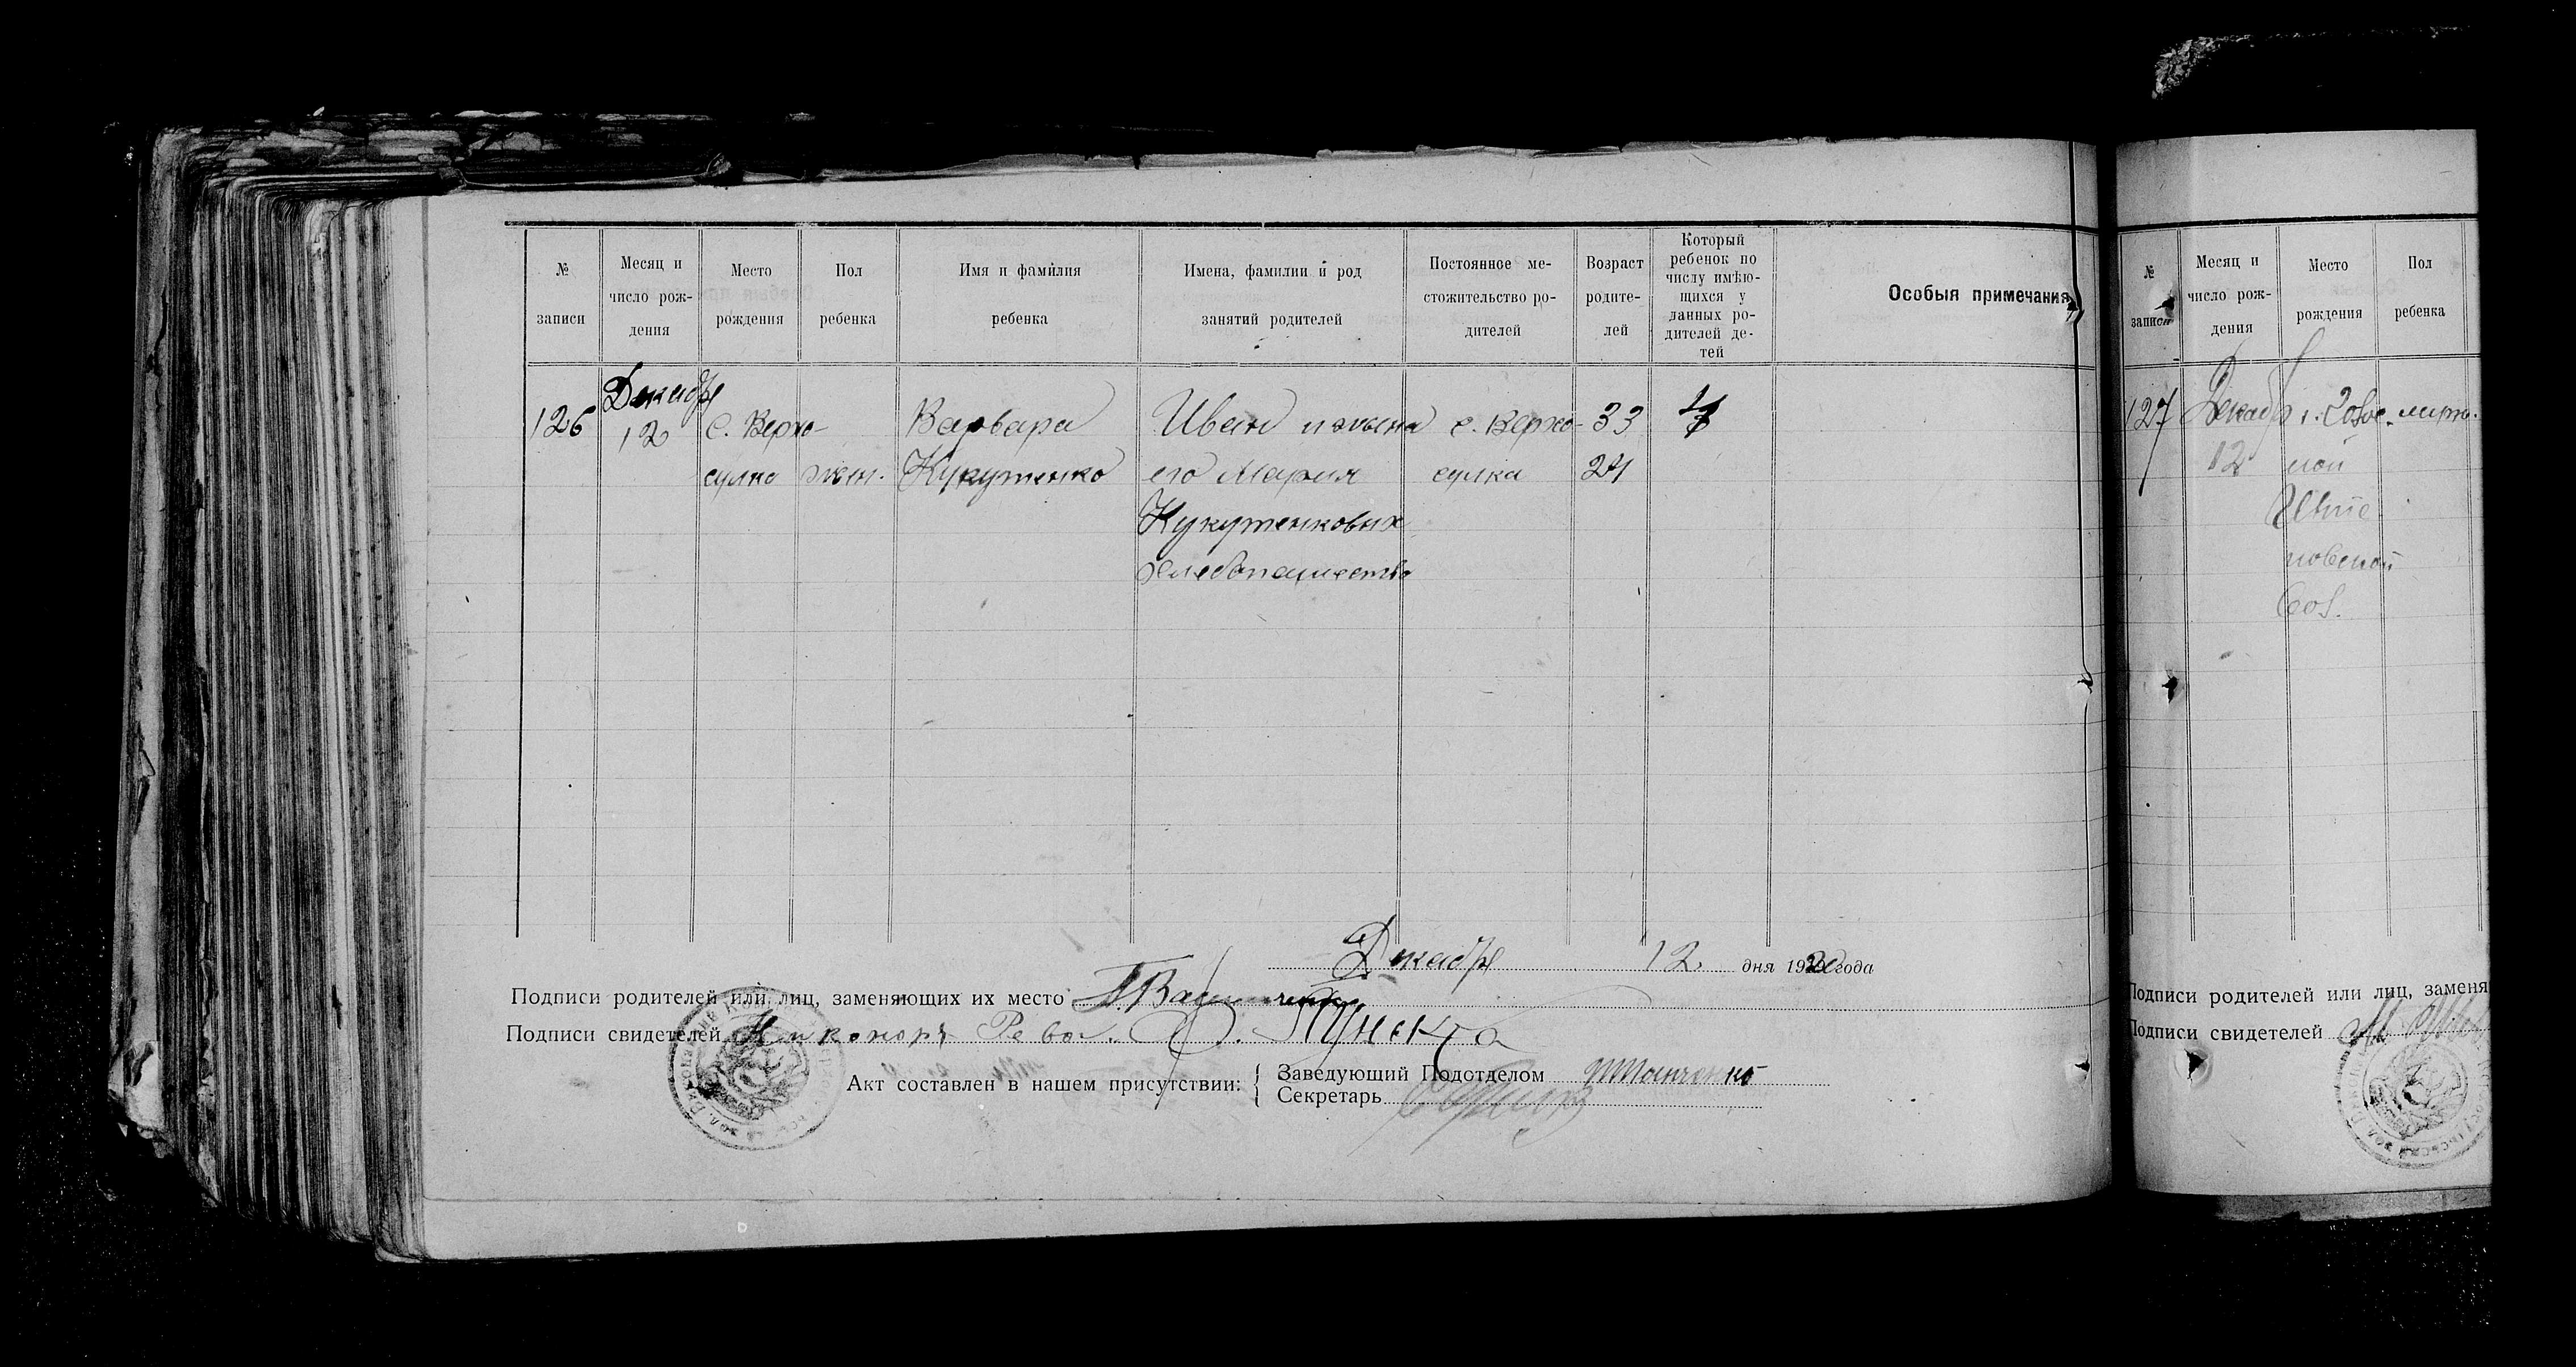 № записи
Месяц и число рож- дения
Место рождения
Пол ребенка
Имя и фамилия ребенка
Имена, фамилии и род занятий родителей
Постоянное ме- стожительство ро- дителей
Возраст родите- лей
Который ребенок по числу имѣю- щихся у данных ро- дителей де- тей
Особыя примечания
126
Декабр
12
с. Верхо-
сулка
жен.
Варвара
Кукутенко
Иван и жена
его Мария
Кукутенковых
хлебопашество
с. Верхо-
сулка
33
24
Декабр 12 дня 1920 года
Подписи родителей или лиц, заменяющих их место
Подписи свидетелей Никоноръ
Акт составлен в нашем присутствии:
Заведующий Подотделом
Секретарь
№ записи
Месяц и число рож- дения
Место рождения
Пол ребенка
127
Декабр
12
Подписи родителей или лиц, заменя
Подписи свидетелей